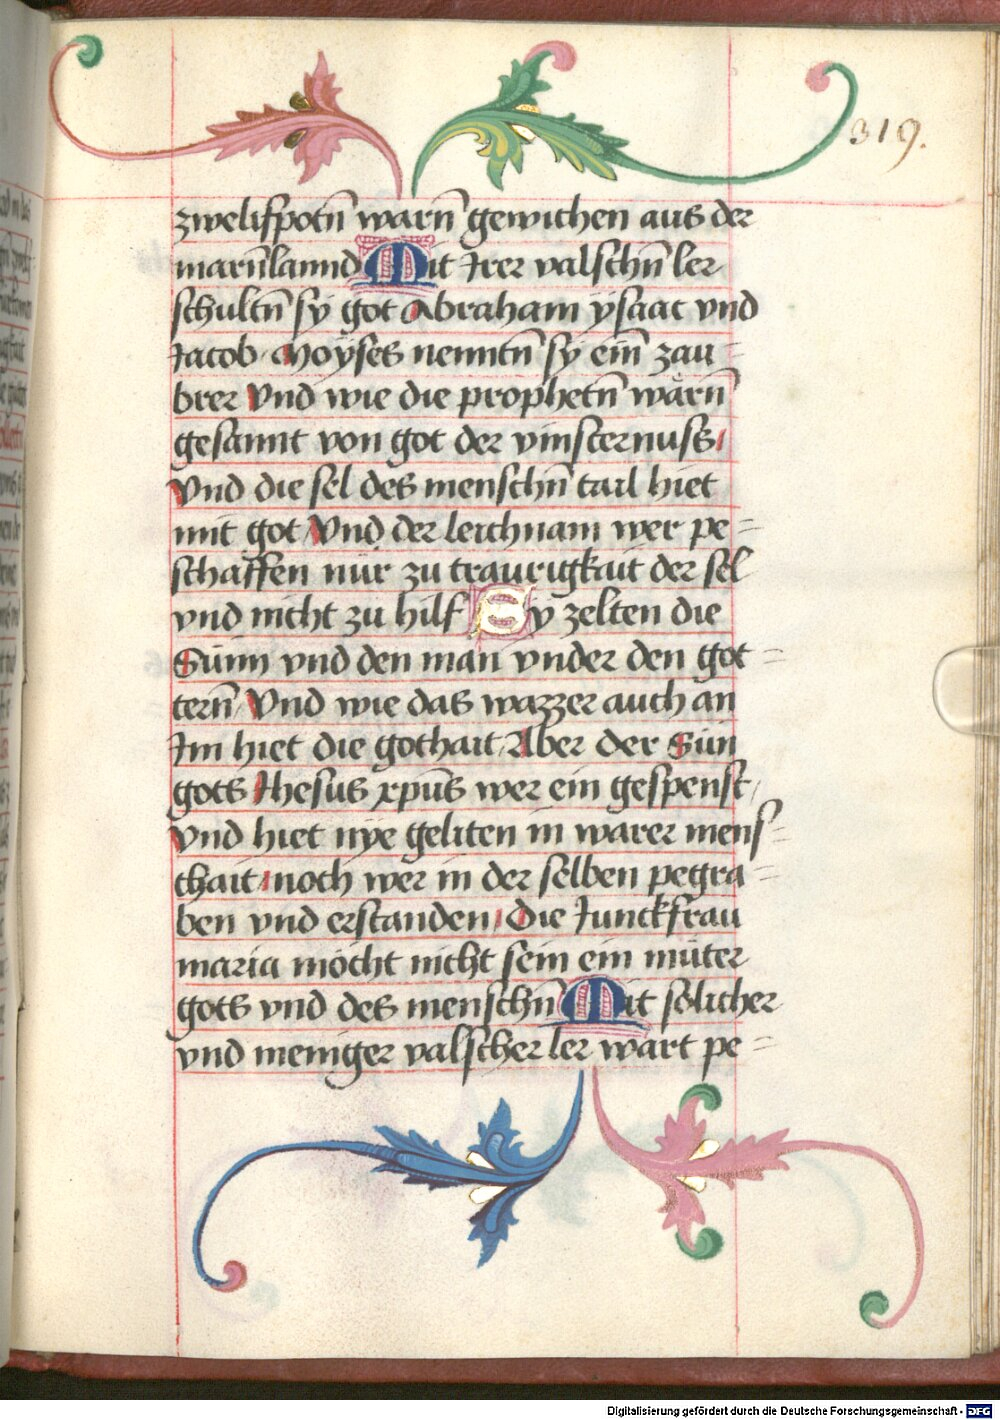 319.
zwelifpotn̄ warn̄ gewichen aus der
marn̄lannd Mit Irer valschn̄ ler
schultn̄ sy got Abraham ysaac vnd
Jacob Moÿses nenntn̄ sy ein̄ zau=
brer Vnd wie die prophetn̄ wärn̄
gesannt von got der vinsternuss/
Vnd die sel des menschn̄ tail hiet
mit got Vnd der leichnam wer pe=
schaffen nür zu traurigkait der sel
vnd nicht zu hilf Sy zelten die
Sunn vnd den man vnder den got=
tern̄ Vnd wie das wazzer auch an
Im hiet die gothait Aber der Sün
gots Jhesus xp̄us wer ein gespenst/
Vnd hiet nÿe geliten in warer mens=
chait/ noch wer in der selben pegra=
ben vnd erstanden/ Die Junckfrau
maria möcht nicht sein ein müter
gots vnd des menschn̄ Mit sölicher
vnd meniger valscher ler wart pe=
Digitalisierung gefördert durch die Deutsche Forschungsgemeinschaft - DFG